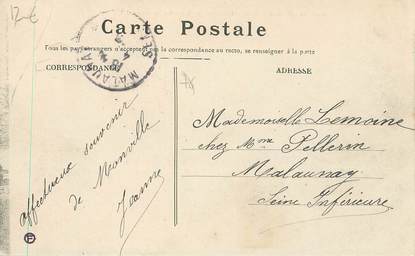 12 €
Carte Postale
Tous les pays étrangers n'acceptent pas la correspondance au recto, se renseigner à la poste
CORRESPONDANCE
ADRESSE
MALAUNAY
affectueux souvenir
de Monville
Jeanne
Mademoiselle Lemoine
chez Mme Pellerin
Malaunay
Seine Inférieure